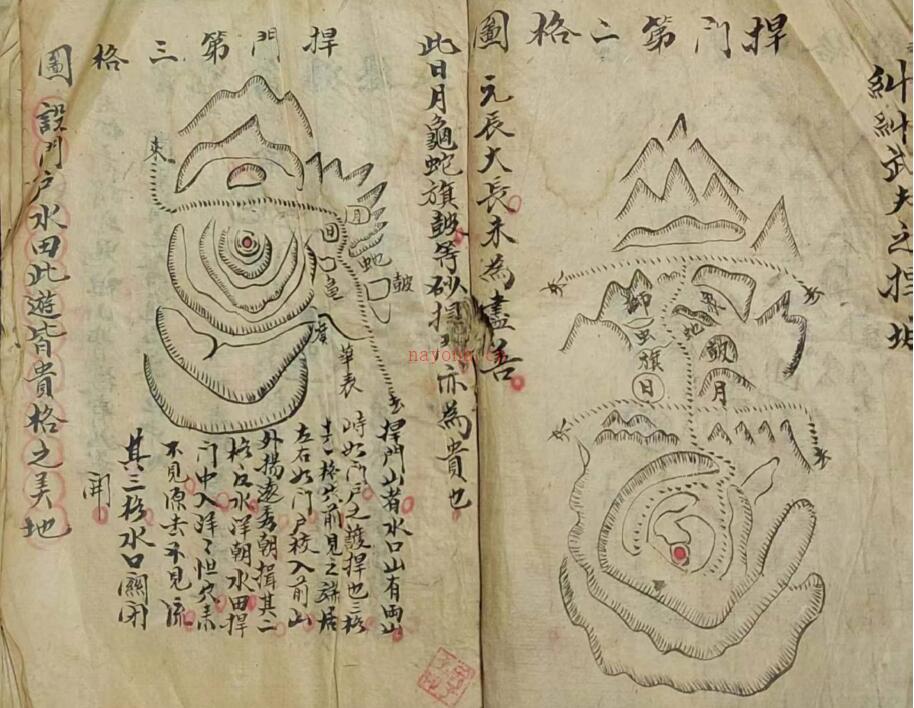 糾糾武夫之捍城
捍门第二格圖
獅
虫
旗
日
象
地
鼓
月
元長大長未為盡善
此日月龜蛇旗鼓等砂捍亦為貴也
捍門第三格圖
來
月
蛇
鼓
龟
旗
華表
去
捍門山者水口山有両山
峙如門戶之護捍也三格
去一格前見之端居
左右如門戶棱入前山
外揚遠秀朝揖其二
格反水洋朝水田捍
門中入洋々怛
不見源去不見流
其三格水口關闭
開
設門戶水田此遊皆貴格之美地
nayong.com